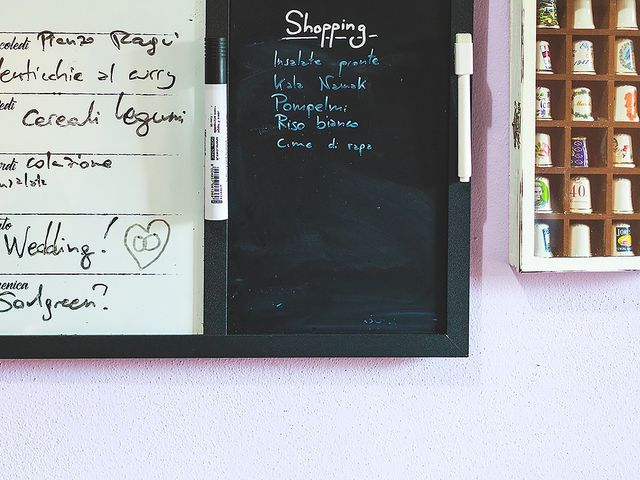 coledì Pranzo Ragù
enticchie al curry
edì
Cereali legumi
rdì colazione
nsalate
to
Wedding!
enica
Soulgreen?
Shopping
Insalate pronte
Kala Namak
Pompelmi
Riso bianco
Cime di rapa
40